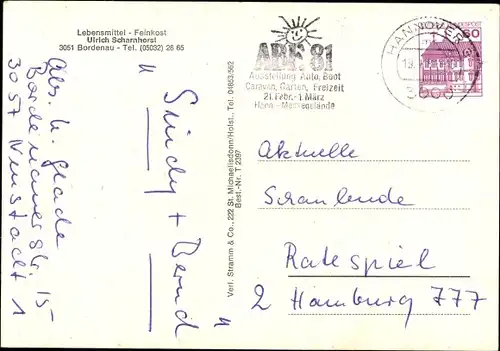 Lebensmittel - Feinkost
Ulrich Scharnhorst
3051 Bordenau - Tel. (05032) 26 65
Abs. U. Glade
Bordenauer Str. 15
3057 Neustadt 1
"
Sindy + Bernd
"
Verl. Stramm & Co., 222 St. Michaelisdonn/Holst., Tel. 04853/562
Best.-Nr. T 2397
ABF 81
Ausstellung Auto, Boot
Caravan, Garten, Freizeit
21. Febr. - 1. März
Hann. - Messegelände
HANNOVER
3000
60
Aktuelle
Schaubude
Ratespiel
2 Hamburg 777